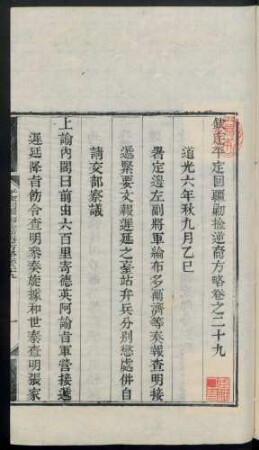 欽定平定回疆勦捡逆裔方略卷之二十九
道光六年秋九月乙巳
署定邊左副將軍綸布多爾濟等奏報查明接
遞緊要文報遲延之臺站弁兵分別懲處併自
請交部察議
上諭內閣曰前由六百里寄德英阿諭旨軍營接遞
遲延降旨飭令查明參奏旋據和世泰查明張家